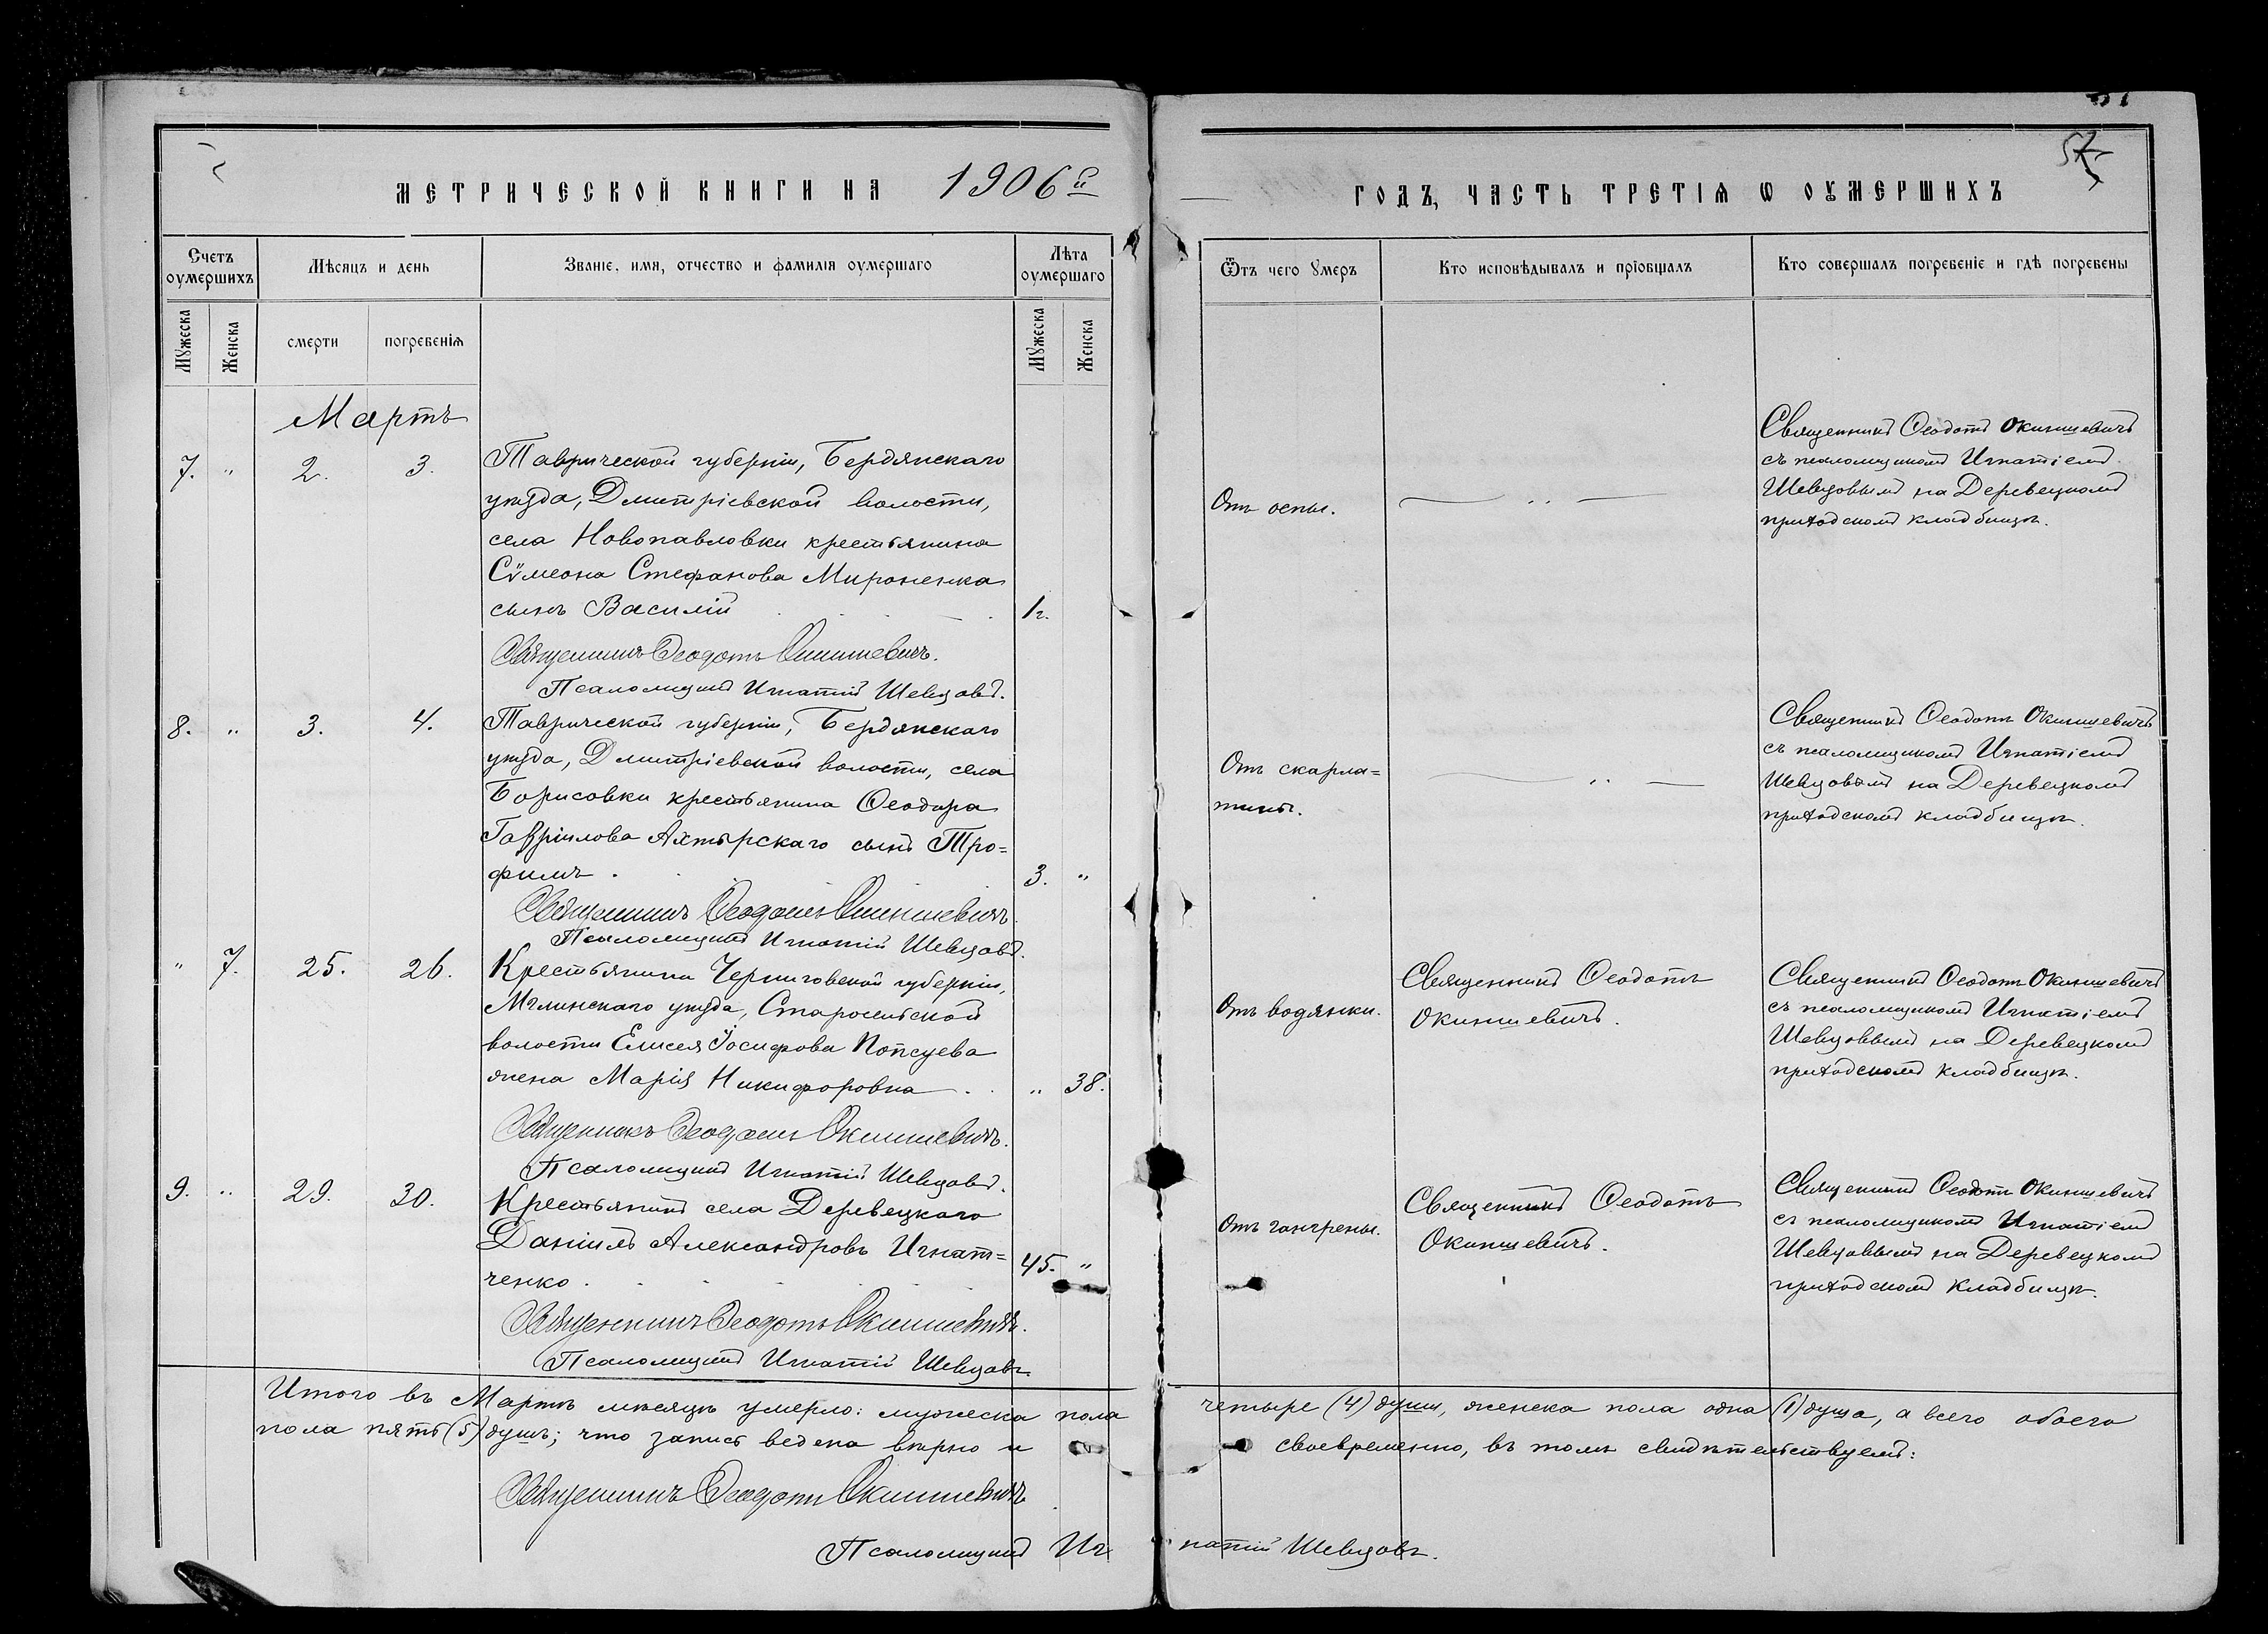 МЕТРИЧЕСКОЙ КНИГИ НА 1906й
ГОДЪ, ЧАСТЬ ТРЕТІѦ Ѡ ОУМЕРШИХЪ
57
Счетъ оумершихъ
Мѣсяцъ и день
Званіе, имя, отчество и фамилія оумершаго
Лѣта оумершаго
Ѿтъ чего умеръ
Кто исповѣдывалъ и пріобщалъ
Кто совершалъ погребеніе и гдѣ погребены
Мужеска
Женска
смерти
погребенія
Мужеска
Женска
Мартъ
7. " 2. 3.
Таврической губерніи, Бердянскаго
уѣзда, Дмитріевской волости,
села Новопавловки крестьянина
Сѵмеона Стефанова Мироненка
сынъ Василій
1 г.
Отъ оспы.
Священникъ Ѳеодотъ Окиншевичъ
съ псаломщикомъ Игнатіемъ
Шевцовымъ на Деревецкомъ
приходскомъ кладбищѣ.
Священникъ Ѳеодотъ Окиншевичъ.
Псаломщикъ Игнатій Шевцовъ.
8. " 3. 4.
Таврической губерніи, Бердянскаго
уѣзда, Дмитріевской волости, села
Борисовки крестьянина Ѳеодора
Гавріилова Ахтырскаго сынъ Тро=
фимъ
3. "
Отъ скарла=
тины.
Священникъ Ѳеодотъ Окиншевичъ
съ псаломщикомъ Игнатіемъ
Шевцовымъ на Деревецкомъ
приходскомъ кладбищѣ.
Священникъ Ѳеодотъ Окиншевичъ
Псаломщикъ Игнатій Шевцовъ.
" 7. 25. 26.
Крестьянина Черниговской губерніи,
Мглинскаго уѣзда, Старосельской
волости Елисея Іосифова Попсуева
жена Марія Никифоровна
" 38.
Отъ водянки.
Священникъ Ѳеодотъ
Окиншевичъ.
Священникъ Ѳеодотъ Окиншевичъ
съ псаломщикомъ Игнатіемъ
Шевцовымъ на Деревецкомъ
приходскомъ кладбищѣ.
Священникъ Ѳеодотъ Окиншевичъ.
Псаломщикъ Игнатій Шевцовъ.
9. " 29. 30.
Крестьянинъ села Деревецкаго
Даніилъ Александровъ Игнат=
ченко
45. "
Отъ гангрены.
Священникъ Ѳеодотъ
Окиншевичъ.
Священникъ Ѳеодотъ Окиншевичъ
съ псаломщикомъ Игнатіемъ
Шевцовымъ на Деревецкомъ
приходскомъ кладбищѣ.
Священникъ Ѳеодотъ Окиншевичъ.
Псаломщикъ Игнатій Шевцовъ
Итого въ Мартѣ мѣсяцѣ умерло: мужеска пола четыре (4) души, женска пола одна (1) душа, а всего обоего
пола пять (5) душъ; что запись ведена вѣрно и своевременно, въ томъ свидѣтельствуемъ:
Священникъ Ѳеодотъ Окиншевичъ
Псаломщикъ Игнатій Шевцовъ.